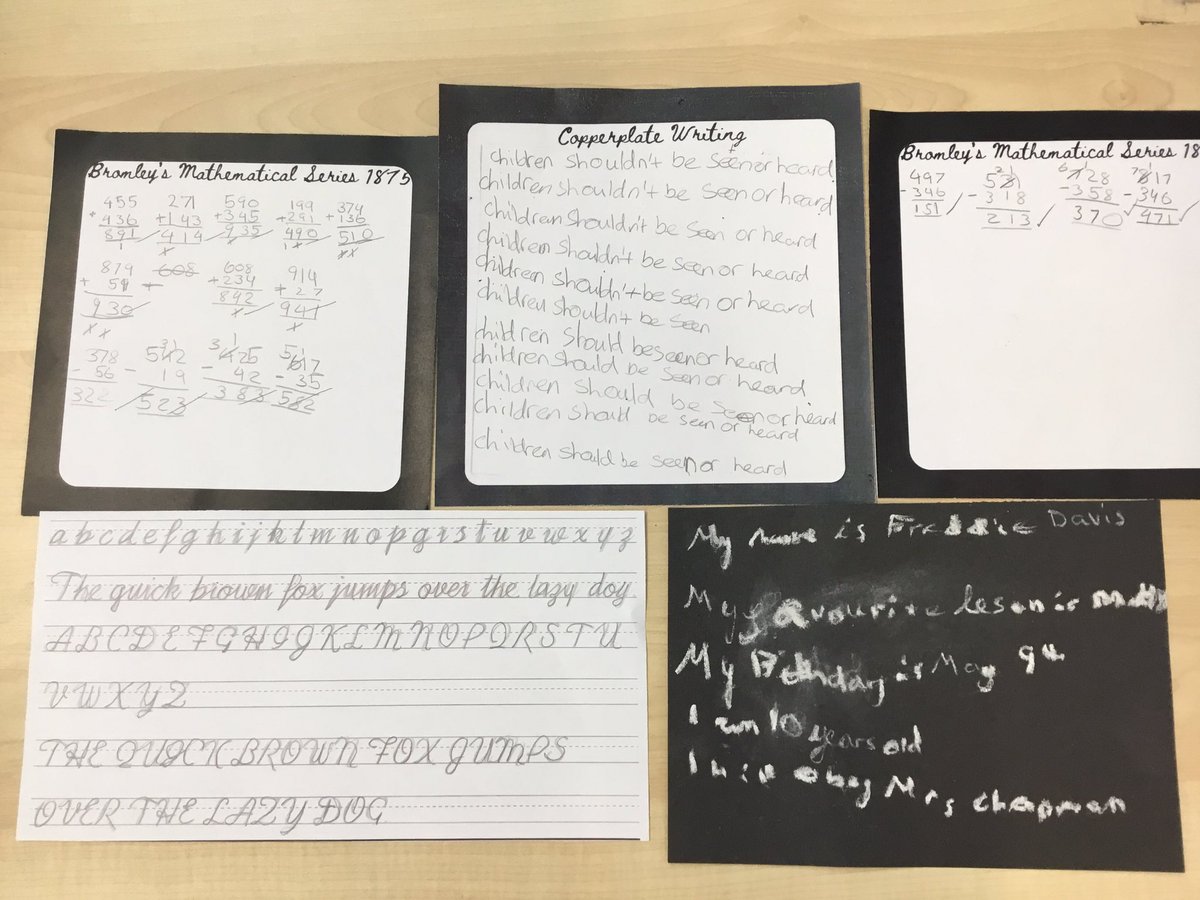 Bromley's Mathematical Series 1875
455 271 590 199 374
+ 436 +143 +345 +291 +136
891 414 935 490 510
1
879 608 608 914
+ 51 + +234 +27
930 842 941
378 542 425 617
- 56 - 19 - 42 - 35
322 523 383 582
Copperplate Writing
children shouldn't be seen or heard
children shouldn't be seen or heard
children shouldn't be seen or heard
children shouldn't be seen or heard
children shouldn't be seen or heard
children shouldn't be seen
children should be seen or heard
children should be seen or heard
children should be seen or heard
children should be seen or heard
children should be seen or heard
Bromley's Mathematical Series 18
497 531 728 817
-346 -318 -358 -346
151 213 370 471
a b c d e f g h i j k l m n o p q r s t u v w x y z
The quick brown fox jumps over the lazy dog
A B C D E F G H I J K L M N O P Q R S T U
V W X Y Z
THE QUICK BROWN FOX JUMPS
OVER THE LAZY DOG
My name is Freddie Davis
My favourite leson is maths
My Birthday is May 9th
I am 10 years old
I obey Mrs Chapman